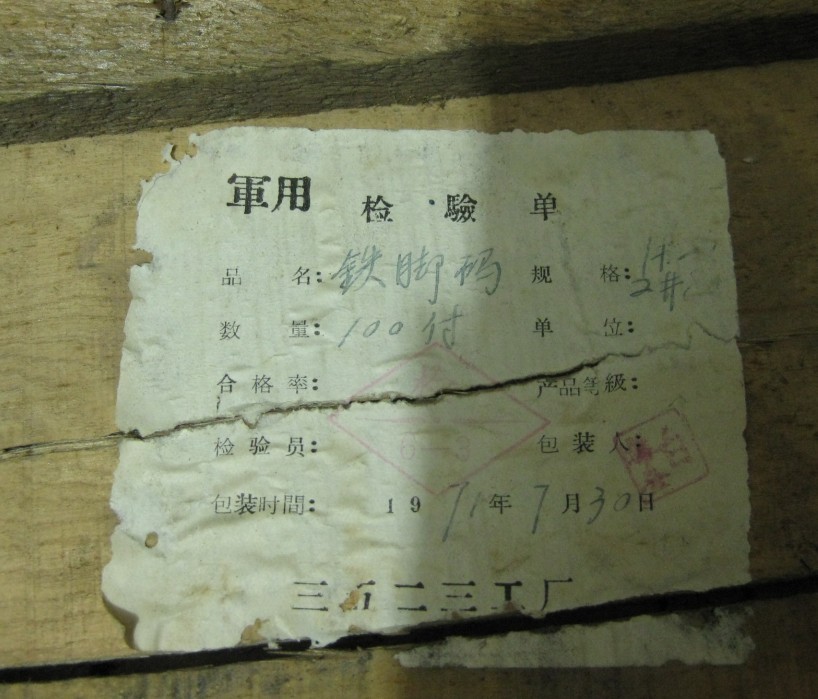 軍用 检驗单
品名：鉄脚码 规格：
数量：100付 单位：
合格率： 产品等級：
检验员： 包装人：
包装时間： 1971年7月30日
三五二三工厂